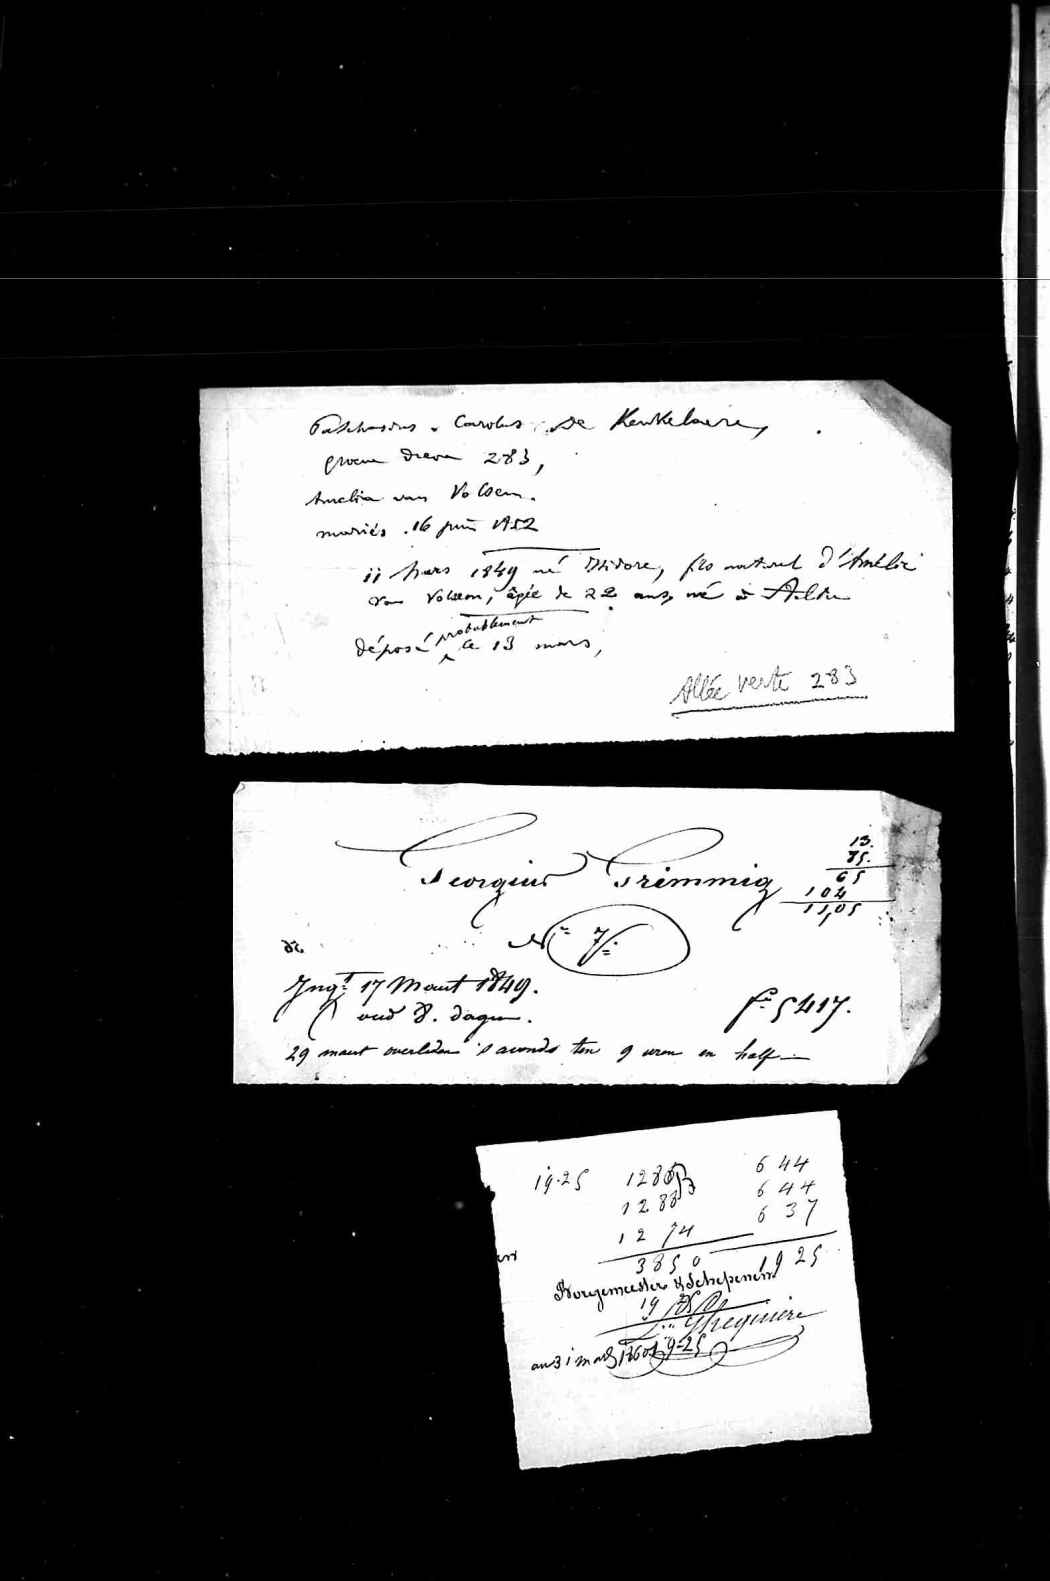 Paschasius . Carolus . De Keukelaere,
groene dreve 283,
Amelia van Volsem.
mariés . 16 juin 1852
11 Mars 1849 né Isidore, fils naturel d'Amélie
van Volsem, âgée de 22 ans, né à
déposé probablement le 13 mars,
Allée verte 283
Georgius Grimmig
13.
85.
65
104
11,05
N.º 7.
de
Ingt 17 Maart 1849.
oud 8. dagen.
fº 5417.
29 maart overleden 's avonds ten 9 uren en half
19.25 1288 644
1288 644
1274 637
3850 1925
Borgemeester & Schepenen
19
Ghequiere
9-25